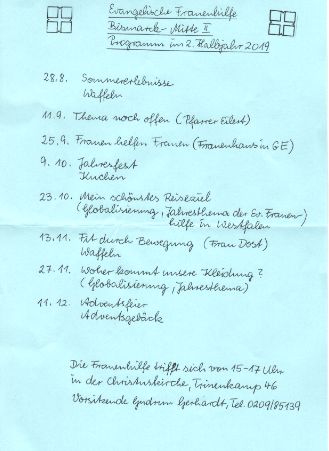 Evangelische Frauenhilfe
Bismarck-Mitte II
Programm im 2. Halbjahr 2019
28.8. Sommererlebnisse
Waffeln
11.9. Thema noch offen (Pfarrer Eilert)
25.9. Frauen helfen Frauen (Frauenhaus in GE)
9.10. Jahresfest
Kuchen
23.10. Mein schönstes Reiseziel
(Globalisierung, Jahresthema der Ev. Frauen-
hilfe in Westfalen
13.11. Fit durch Bewegung (Frau Dost)
Waffeln
27.11. Woher kommt unsere Kleidung?
(Globalisierung, Jahresthema)
11.12. Adventsfeier
Adventsgebäck
Die Frauenhilfe trifft sich von 15-17 Uhr
in der Christuskirche, Trinenkamp 46
Vorsitzende Gudrun Gerhardt, Tel. 0209/85139